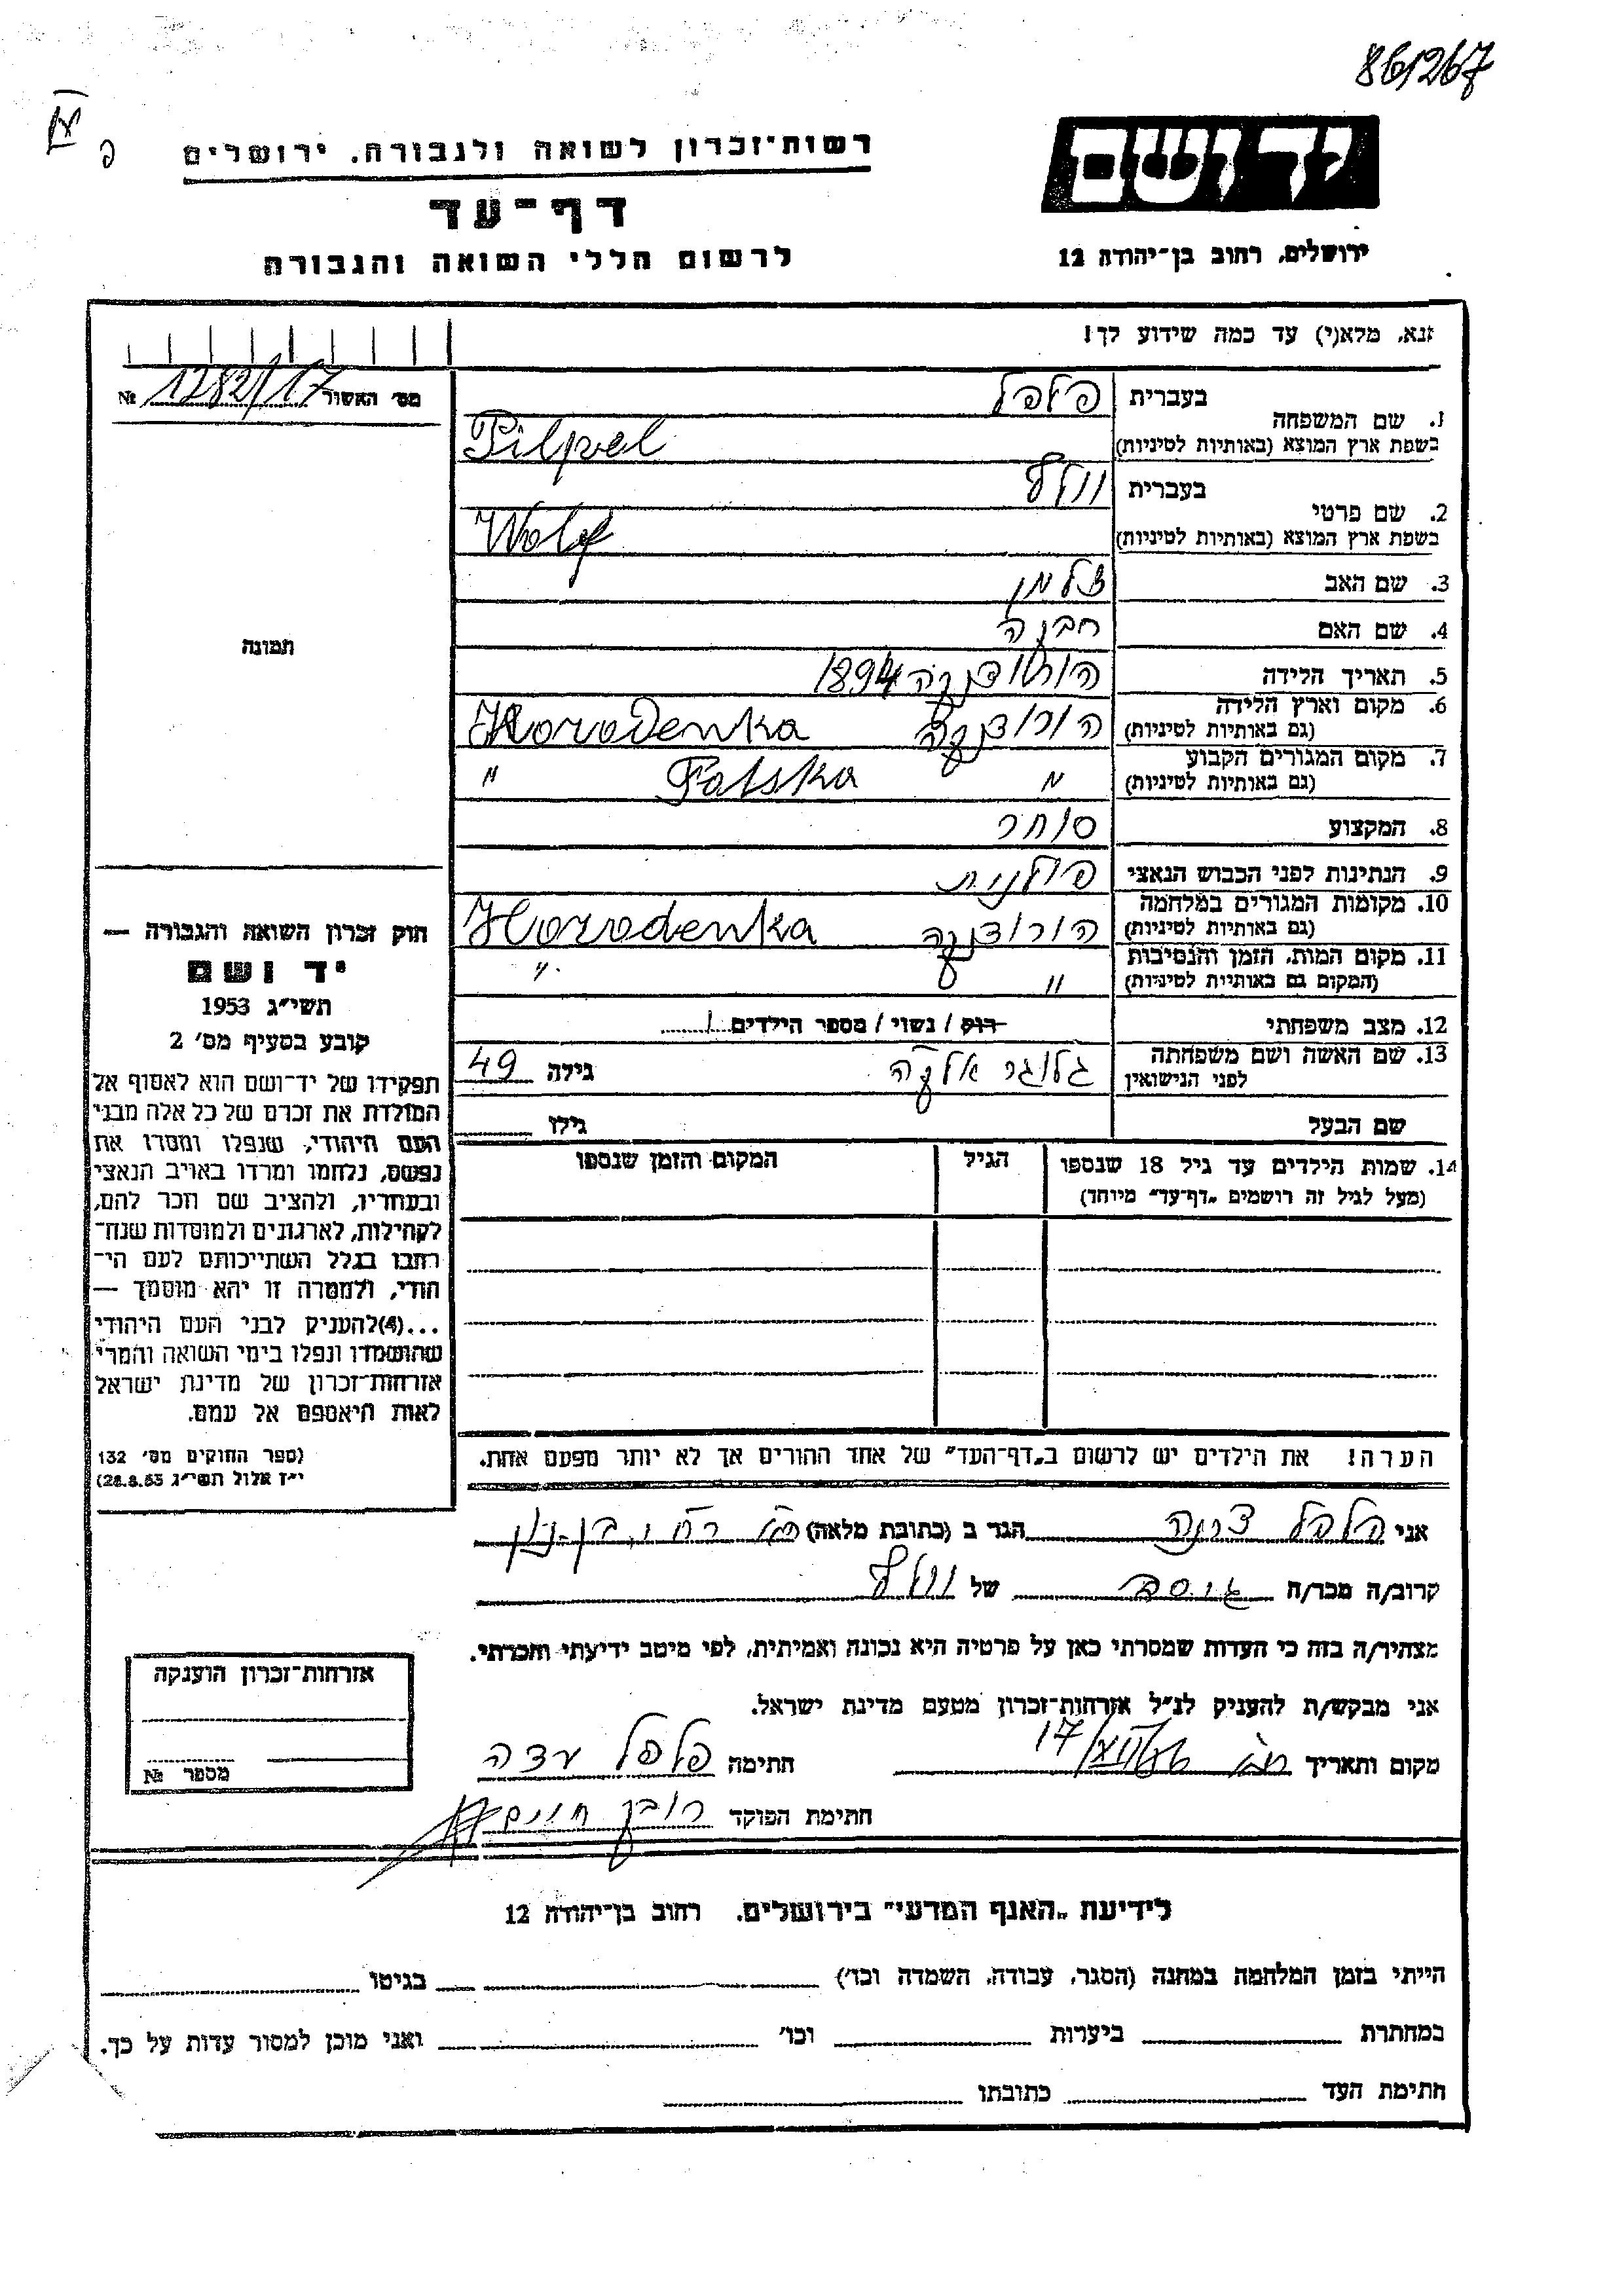 861267
IV
פ
יד ושם
רשות־זכרון לשואה ולגבורה, ירושלים
דף־עד
לרשום חללי השואה והגבורה
ירושלים, רחוב בן־יהודה 12
נא, מלא(י) עד כמה שידוע לך!
מס׳ האשור 1282/17 №
1. שם המשפחה
בעברית פלפל
בשפת ארץ המוצא (באותיות לטיניות) Pilpel
2. שם פרטי
בעברית וולף
בשפת ארץ המוצא (באותיות לטיניות) Wolf
3. שם האב זלמן
4. שם האם
5. תאריך הלידה הורודנקה 1894
6. מקום וארץ הלידה (גם באותיות לטיניות) הורודנקה Horodenka
7. מקום המגורים הקבוע (גם באותיות לטיניות) " Polska "
8. המקצוע סוחר
9. הנתינות לפני הכבוש הנאצי פולנית
10. מקומות המגורים במלחמה (גם באותיות לטיניות) הורודנקה Horodenka
11. מקום המות, הזמן והנסיבות (המקום גם באותיות לטיניות) " "
12. מצב משפחתי רוק / נשוי / מספר הילדים 1
13. שם האשה ושם משפחתה לפני הנישואין גילה 49
שם הבעל גילו
14. שמות הילדים עד גיל 18 שנספו
(מעל לגיל זה רושמים „דף־עד״ מיוחד)
הגיל
המקום והזמן שנספו
הערה! את הילדים יש לרשום ב„דף־העד״ של אחד ההורים אך לא יותר מפעם אחת.
תמונה
חוק זכרון השואה והגבורה —
יד ושם
תשי״ג 1953
קובע בסעיף מס׳ 2
תפקידו של יד־ושם הוא לאסוף אל
המולדת את זכרם של כל אלה מבני
העם היהודי, שנפלו ומסרו את
נפשם, נלחמו ומרדו באויב הנאצי
ובעוזריו, ולהציב שם וזכר להם,
לקהילות, לארגונים ולמוסדות שנח־
רבו בגלל השתייכותם לעם הי־
הודי, ולמטרה זו יהא מוסמך —
...(4)להעניק לבני העם היהודי
שהושמדו ונפלו בימי השואה והמרי
אזרחות־זכרון של מדינת ישראל
לאות היאספם אל עמם.
(ספר החוקים מס׳ 132
י״ז אלול תשי״ג 28.8.53)
אני פלפל הגר ב (כתובת מלאה)
קרוב/ה מכר/ה של וולף
מצהיר/ה בזה כי העדות שמסרתי כאן על פרטיה היא נכונה ואמיתית, לפי מיטב ידיעתי והכרתי.
אני מבקש/ת להעניק לנ״ל אזרחות־זכרון מטעם מדינת ישראל.
מקום ותאריך 17/ חתימה פלפל
חתימת הפוקד
אזרחות־זכרון הוענקה
מספר №
לידיעת „האגף המדעי״ בירושלים, רחוב בן־יהודה 12
הייתי בזמן המלחמה במחנה (הסגר, עבודה, השמדה וכו׳) בגיטו
במחתרת ביערות וכו׳ ואני מוכן למסור עדות על כך.
חתימת העד כתובתו